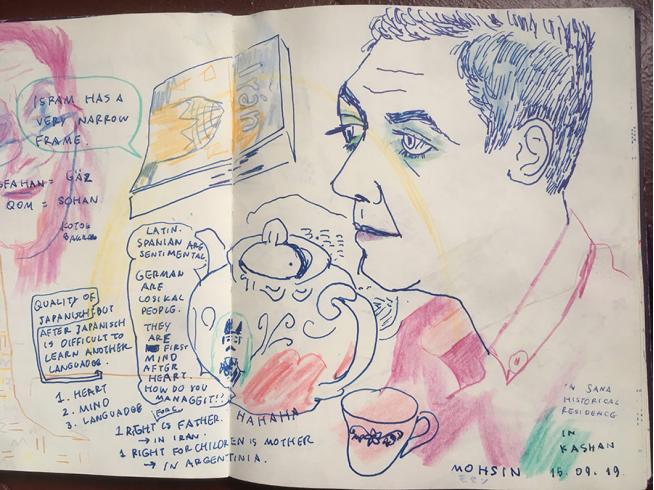 ISLAM HAS A
VERY NARROW
FRAME.
SFAHAN = GAZ
QOM = SOHAN
Iran
LATIN.
SPANIAN ARE
SENTIMENTAL
GERMAN
ARE
LOGIKAL
PEOPLE.
THEY
ARE
FIRST
MIND
AFTER
HEART.
HOW DO YOU
MANAGGEIT!!
QUALITY OF
JAPANISCH BUT
AFTER JAPANISCH
IS DIFFICULT TO
LEARN ANOTHER
LANGUADGE.
1. HEART
2. MIND
3. LANGUADGE
1 RIGHT IS FATHER.
→ IN IRAN.
1 RIGHT FOR CHILDREN IS MOTHER
→ IN ARGENTINIA.
HAHAHA
IN SANA
HISTORICAL
RESIDENCE
IN
KASHAN
MOHSIN 15.09.19.